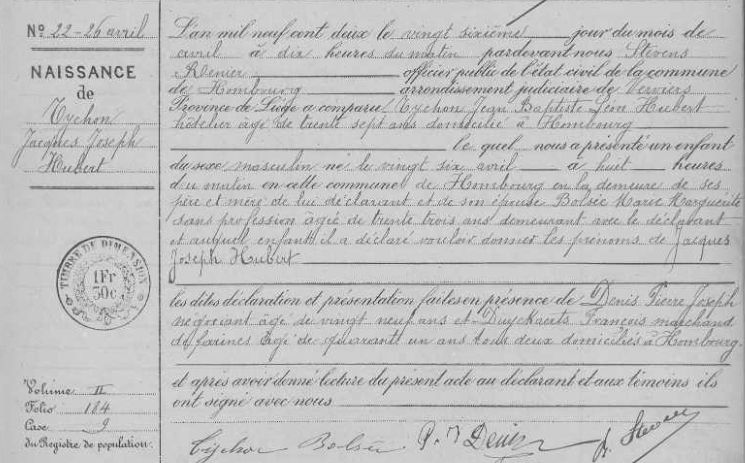 No 22 - 26 avril
NAISSANCE
de
Tychon
Jacques Joseph
Hubert
TIMBRE DE DIMENSION
1Fr
50c
Volume II
Folio 184
Case 9
du Registre de population.
L'an mil neuf cent deux le vingt sixième jour du mois de
avril à dix heures du matin pardevant nous Stevens
Renier officier public de l'état civil de la commune
de Hombourg arrondissement judiciaire de Verviers
Province de Liège a comparu Tychon Jean Baptist Léon Hubert
hôtelier âgé de trente sept ans domicilié à Hombourg
le quel nous a présenté un enfant
du sexe masculin né le vingt six avril à huit heures
du matin en cette commune de Hombourg en la demeure de ses
père et mère de lui déclarant et de son épouse Bolsée Marie Marguerite
sans profession âgée de trente trois ans demeurant avec le déclarant
et auquel enfant il a déclaré vouloir donner les prénoms de Jacques
Joseph Hubert
les dites déclaration et présentation faites en présence de Denis Pierre Joseph
négociant âgé de vingt neuf ans et Duyckaerts François marchand
de farines âgé de quarante un ans tous deux domiciliés à Hombourg.
et après avoir donné lecture du présent acte au déclarant et aux témoins ils
ont signé avec nous
Tychon Bolsée P. J Denis Stevens